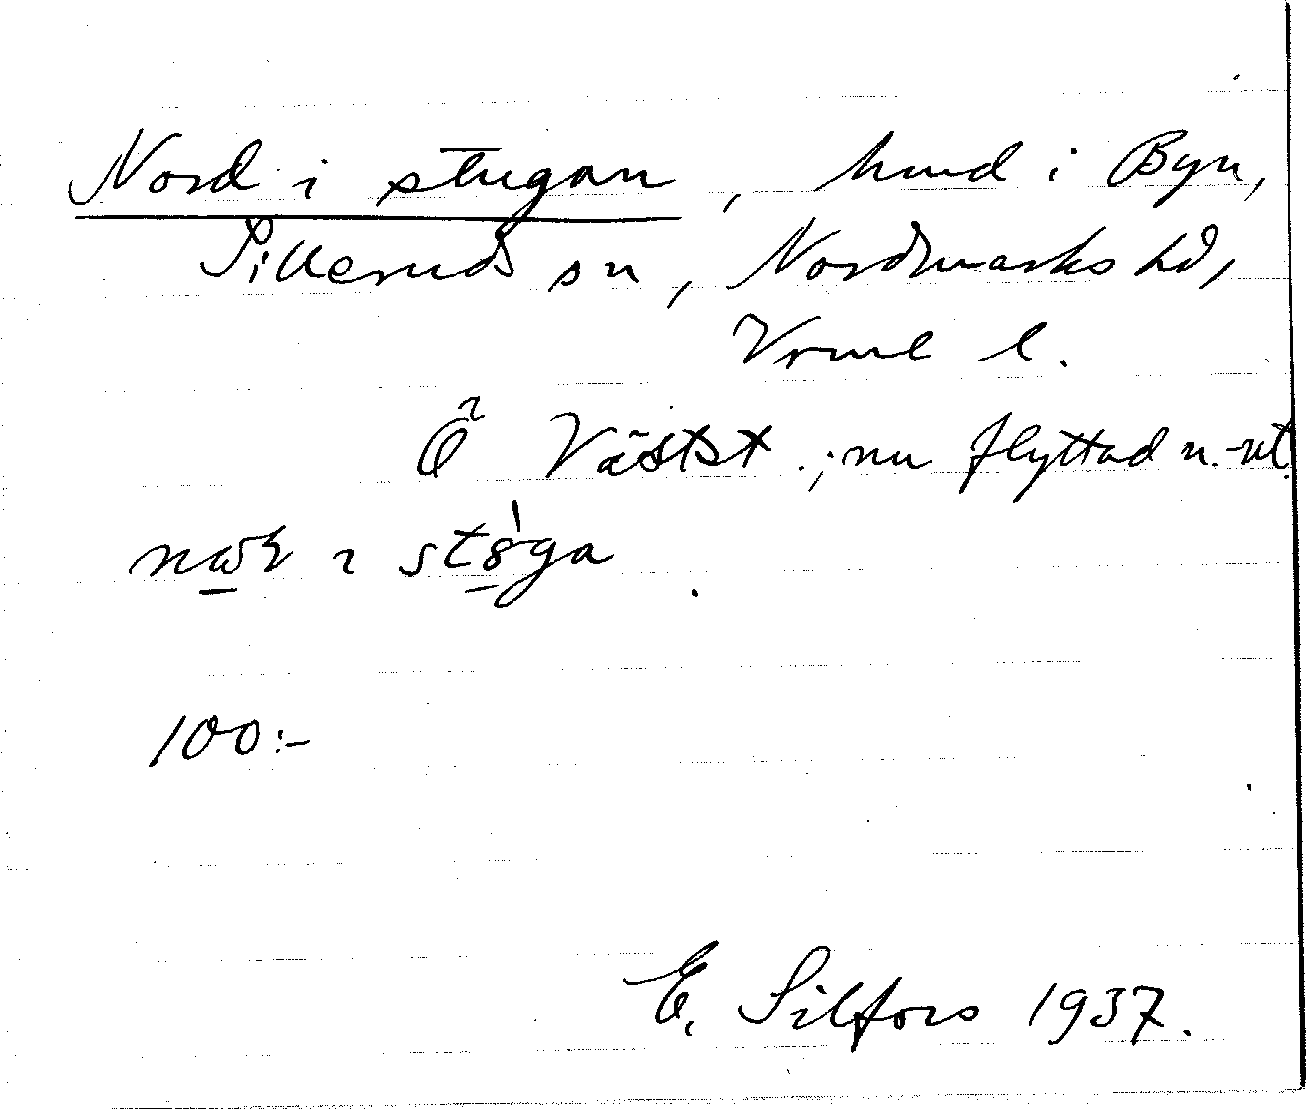 Nord i stugan, hmd i Byn,
Sillerud sn, Nordmarks hd,
Vrml l.
Ö Västst.; nu flyttad n.-ut.
i støga.
100:-
E. Silfors 1937.